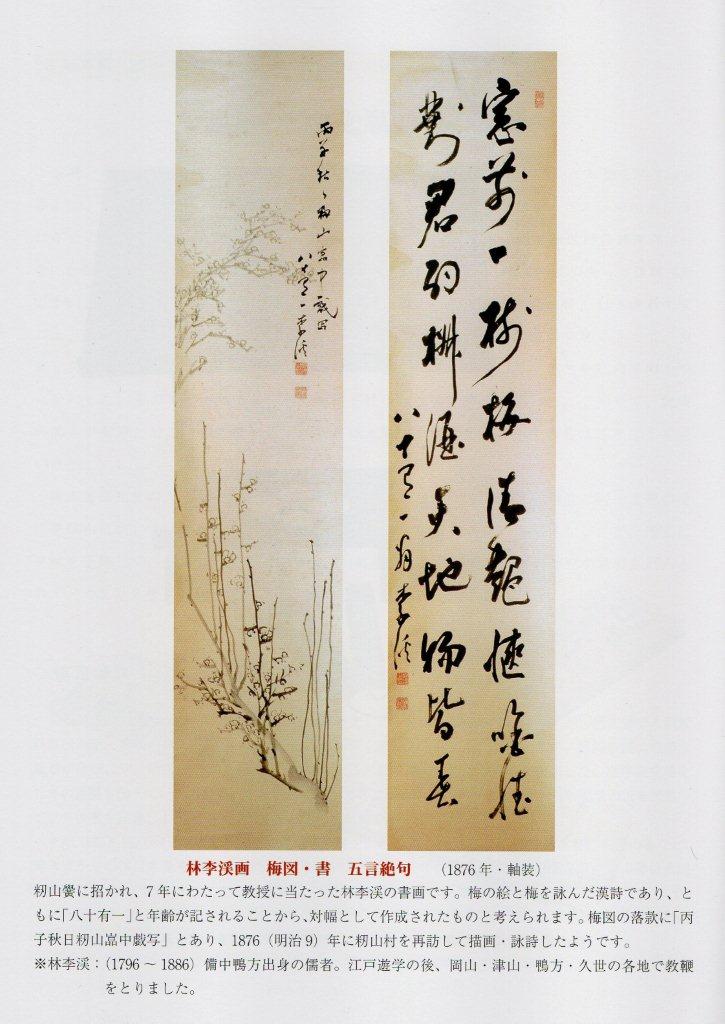 窓前一樹梅清艶愜吟
對君酒天地物皆春
八十有一翁李渓
丙子秋日籾山中戯写
八十有一李渓
林李渓画　梅図・書　五言絶句　（1876年・軸装）
籾山黌に招かれ、7年にわたって教授に当たった林李渓の書画です。梅の絵と梅を詠んだ漢詩であり、と
もに「八十有一」と年齢が記されることから、対幅として作成されたものと考えられます。梅図の落款に「丙
子秋日籾山嵩中戯写」とあり、1876（明治9）年に籾山村を再訪して描画・詠詩したようです。
※林李渓：（1796～1886）備中鴨方出身の儒者。江戸遊学の後、岡山・津山・鴨方・久世の各地で教鞭
をとりました。